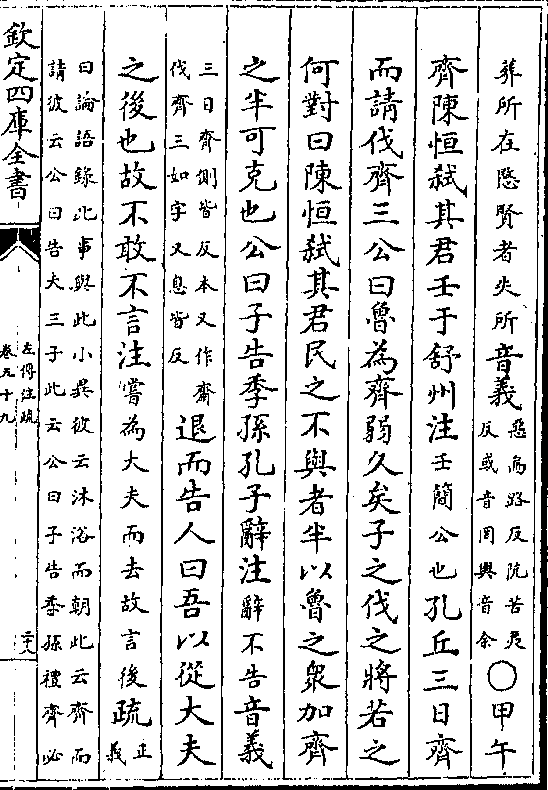 葬所在愍賢者失所音義惡為路反阬苦庚
反或音罔與音余〇甲午
齊陳恒弒其君壬于舒州注壬簡公也孔丘三日齊
而請伐齊三公曰魯為齊弱久矣子之伐之將若之
何對曰陳恒弒其君民之不與者半以魯之衆加齊
之半可克也公曰子告季孫孔子辭注辭不告音義
三日齊側皆反本又作齋
伐齊三如字又息暫反退而告人曰吾以從大夫
之後也故不敢不言注嘗為大夫而去故言後疏正
義
曰論語録此事與此小異彼云沐浴而朝此云齊而
請彼云公曰告夫三子此云公曰子告季孫禮齊必
欽定四庫全書
左傳注疏
卷五十九
二十八